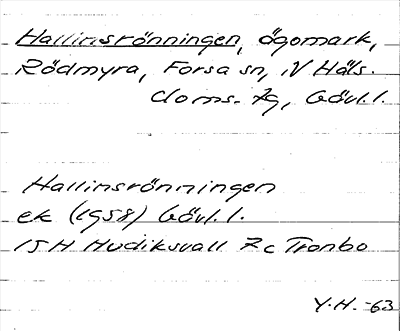 Hallinsrönningen, ägomark,
Rödmyra, Forsa sn, N Häls.
doms. tg, Gävl.l.
Hallinsrönningen
ek (1958) Gävl.l.
15H Hudiksvall 7c Tronbo
Y.H. -63